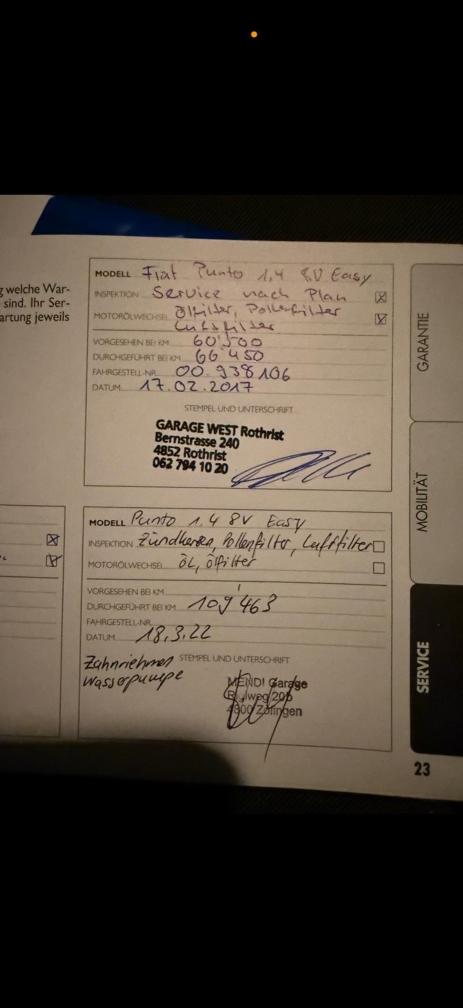 g welche War-
sind. Ihr Ser-
artung jeweils
MODELL Fiat Punto 1,4 8V Easy
INSPEKTION Service nach Plan
MOTORÖLWECHSEL Ölfilter, Pollenfilter
Luftfilter
VORGESEHEN BEI KM 60'500
DURCHGEFÜHRT BEI KM 66'450
FAHRGESTELL-NR. 00.938106
DATUM 17.02.2017
STEMPEL UND UNTERSCHRIFT
GARAGE WEST Rothrist
Bernstrasse 240
4852 Rothrist
062 794 10 20
MODELL Punto 1.4 8V Easy
INSPEKTION Zündkerzen, Pollenfilter, Luftfilter
MOTORÖLWECHSEL ÖL, Ölfilter
VORGESEHEN BEI KM
DURCHGEFÜHRT BEI KM 109'463
FAHRGESTELL-NR.
DATUM 18.3.22
Zahnriehmen STEMPEL UND UNTERSCHRIFT
Wasserpumpe
MENDI Garage
4800 Zofingen
GARANTIE
MOBILITÄT
SERVICE
23